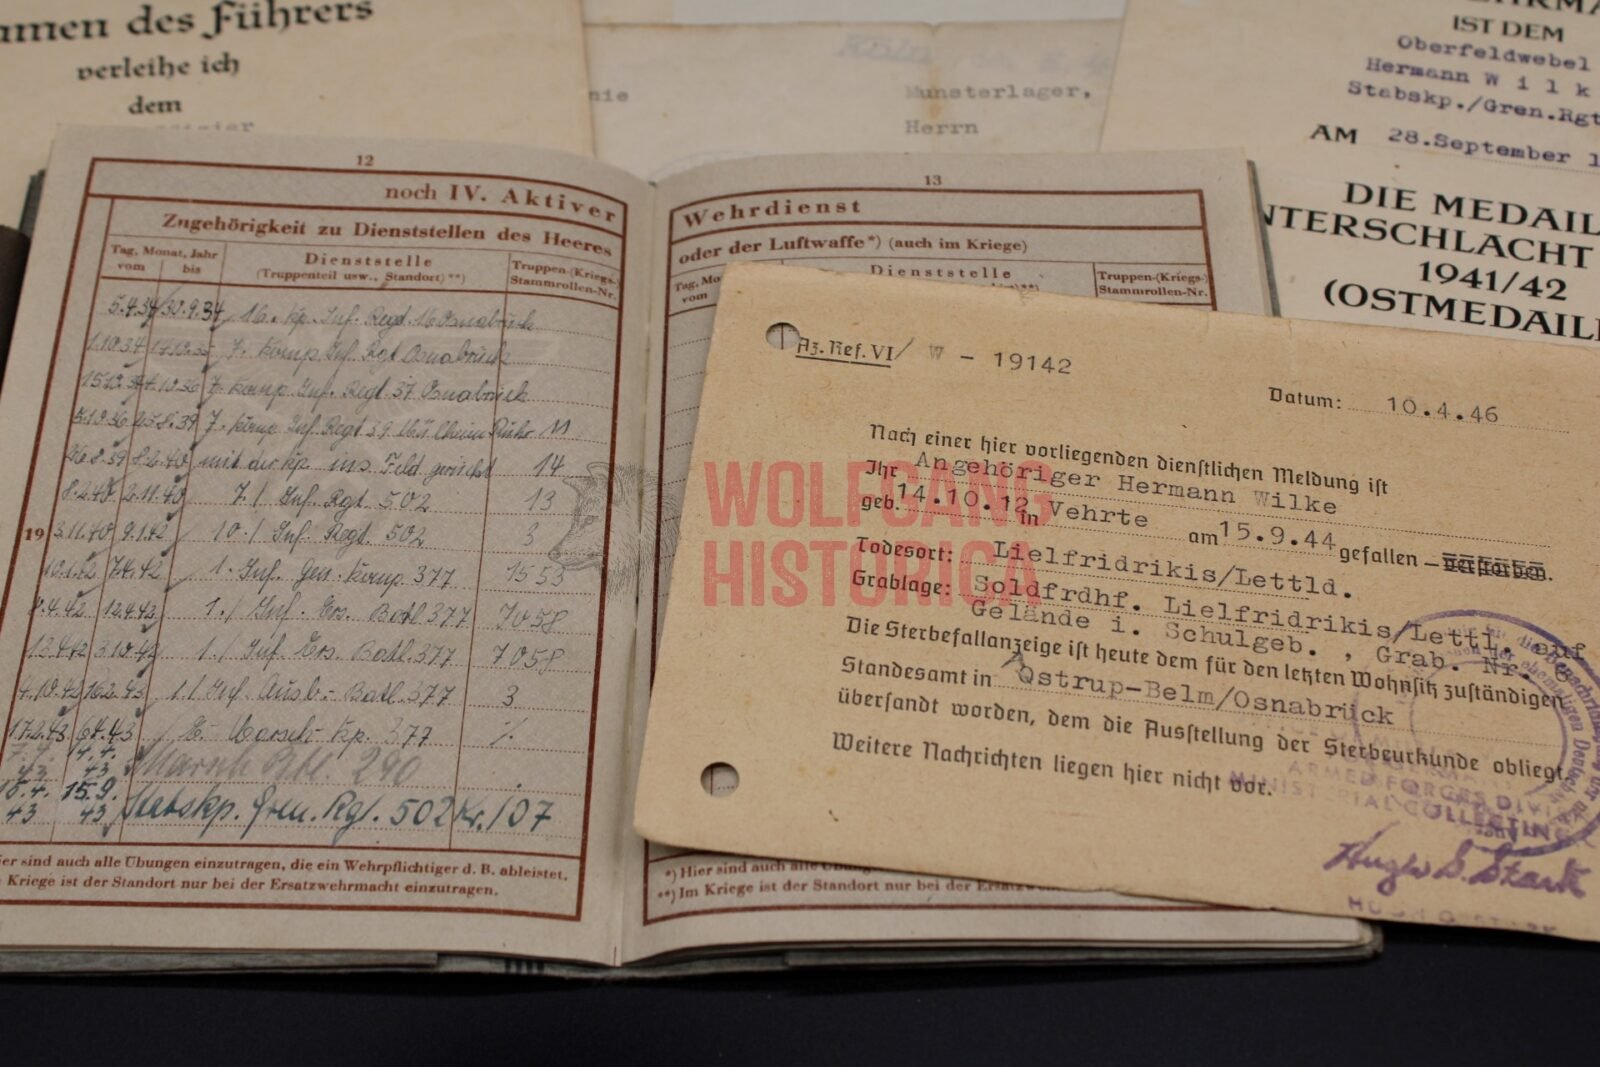 amen des Führers
verleihe ich
dem
nie
Munsterlager,
Herrn
IST DEM
Oberfeldwebel
Hermann W i l k
Stabskp./Gren.Rgt
AM 28.September 1
DIE MEDAIL
NTERSCHLACHT
1941/42
(OSTMEDAIL
12
noch IV. Aktiver
Zugehörigkeit zu Dienststellen des Heeres
Tag, Monat, Jahr
vom bis
Dienststelle
(Truppenteil usw., Standort)**)
Truppen-(Kriegs-)
Stammrollen-Nr.
5.4.34 30.9.34 16. Kp. Inf. Regt. 16 Osnabrück
1.10.34 7. Komp. Inf. Rgt Osnabrück
7. Komp. Inf. Regt 37 Osnabrück
5.10.36 25.8.39 7. Komp Inf Regt 39 Mülheim Ruhr 11
26.8.39 8.2.40 mit der Kp. ins Feld gerückt 14
8.2.40 2.11.40 7./ Inf. Rgt 502 13
19 3.11.40 9.1.42 10./ Inf. Regt. 502 3
10.1.42 7.4.42 1. Inf. Gen. Komp. 377 1553
8.4.42 12.4.42 1./ Inf. Ers. Batl. 377 7058
13.4.42 3.10.42 1./ Inf. Ers. Batl. 377 7058
4.10.42 16.2.43 1./ Inf. Ausb.- Batl. 377 3
17.2.43 6.4.43 Marsch Kp. 377 %
7.4.43 Marsch Btl. 290
15.9.43 Stabskp. Gren. Rgt. 502 Nr. 107
ier sind auch alle Übungen einzutragen, die ein Wehrpflichtiger d. B. ableistet.
Kriege ist der Standort nur bei der Ersatzwehrmacht einzutragen.
13
Wehrdienst
oder der Luftwaffe*) (auch im Kriege)
Tag, Mo
vom
Dienststelle
Truppen-(Kriegs-)
Stammrollen-Nr.
*) Hier sind auch alle
**) Im Kriege ist der Standort nur bei der
Az. Ref. VI/ W - 19142
Datum: 10.4.46
Nach einer hier vorliegenden dienstlichen Meldung ist
Ihr Angehöriger Hermann Wilke
geb. 14.10.12 in Vehrte am 15.9.44 gefallen – verstorben.
Todesort: Lielfridrikis/Lettld.
Grablage: Soldfrdhf. Lielfridrikis/Lettl. auf
Gelände i. Schulgeb. , Grab. Nr. 6
Die Sterbefallanzeige ist heute dem für den letzten Wohnsitz zuständigen
Standesamt in Ostrup-Belm/Osnabrück
übersandt worden, dem die Ausstellung der Sterbeurkunde obliegt.
Weitere Nachrichten liegen hier nicht vor.
ARMED FORCES DIVI
MINISTERIAL COLLECTING
WOLFGANG
HISTORICA